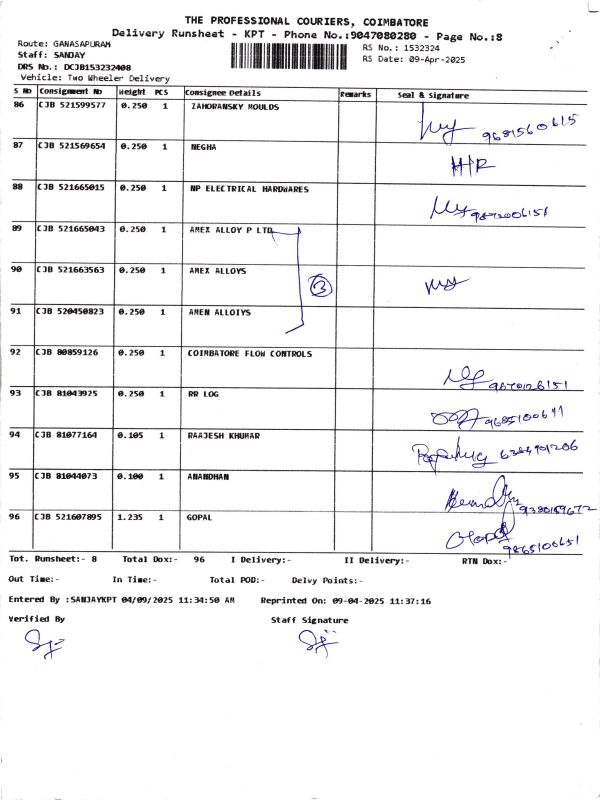 THE PROFESSIONAL COURIERS, COIMBATORE
Delivery Runsheet - KPT - Phone No.:9047080280 - Page No.:8
Route: GANASAPURAM
RS No.: 1532324
Staff: SANJAY
RS Date: 09-Apr-2025
DRS No.: DCJB153232408
Vehicle: Two Wheeler Delivery
S No Consignment No Weight PCS Consignee Details Remarks Seal & Signature
86 CJB 521599577 0.250 1 ZAHORANSKY MOULDS
9681560615
87 CJB 521569654 0.250 1 NEGHA
H/R
88 CJB 521665015 0.250 1 NP ELECTRICAL HARDWARES
89 CJB 521665043 0.250 1 AMEX ALLOY P LTD
90 CJB 521663563 0.250 1 AMEX ALLOYS
3
91 CJB 520450823 0.250 1 AMEN ALLOIYS
92 CJB 80859126 0.250 1 COIMBATORE FLOW CONTROLS
93 CJB 81043925 0.250 1 RR LOG
94 CJB 81077164 0.105 1 RAAJESH KHUMAR
95 CJB 81044073 0.100 1 ANANDHAN
96 CJB 521607895 1.235 1 GOPAL
9865100651
Tot. Runsheet:- 8 Total Dox:- 96 I Delivery:- II Delivery:- RTN Dox:-
Out Time:- In Time:- Total POD:- Delvy Points:-
Entered By :SANJAYKPT 04/09/2025 11:34:50 AM Reprinted On: 09-04-2025 11:37:16
Verified By Staff Signature